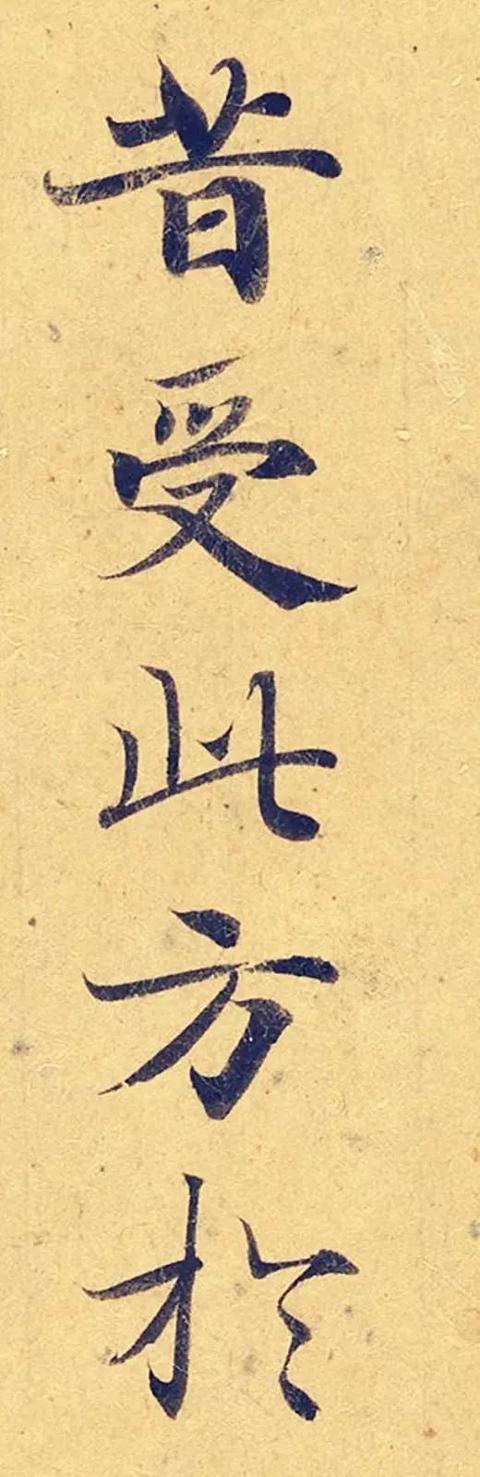 昔受此方於